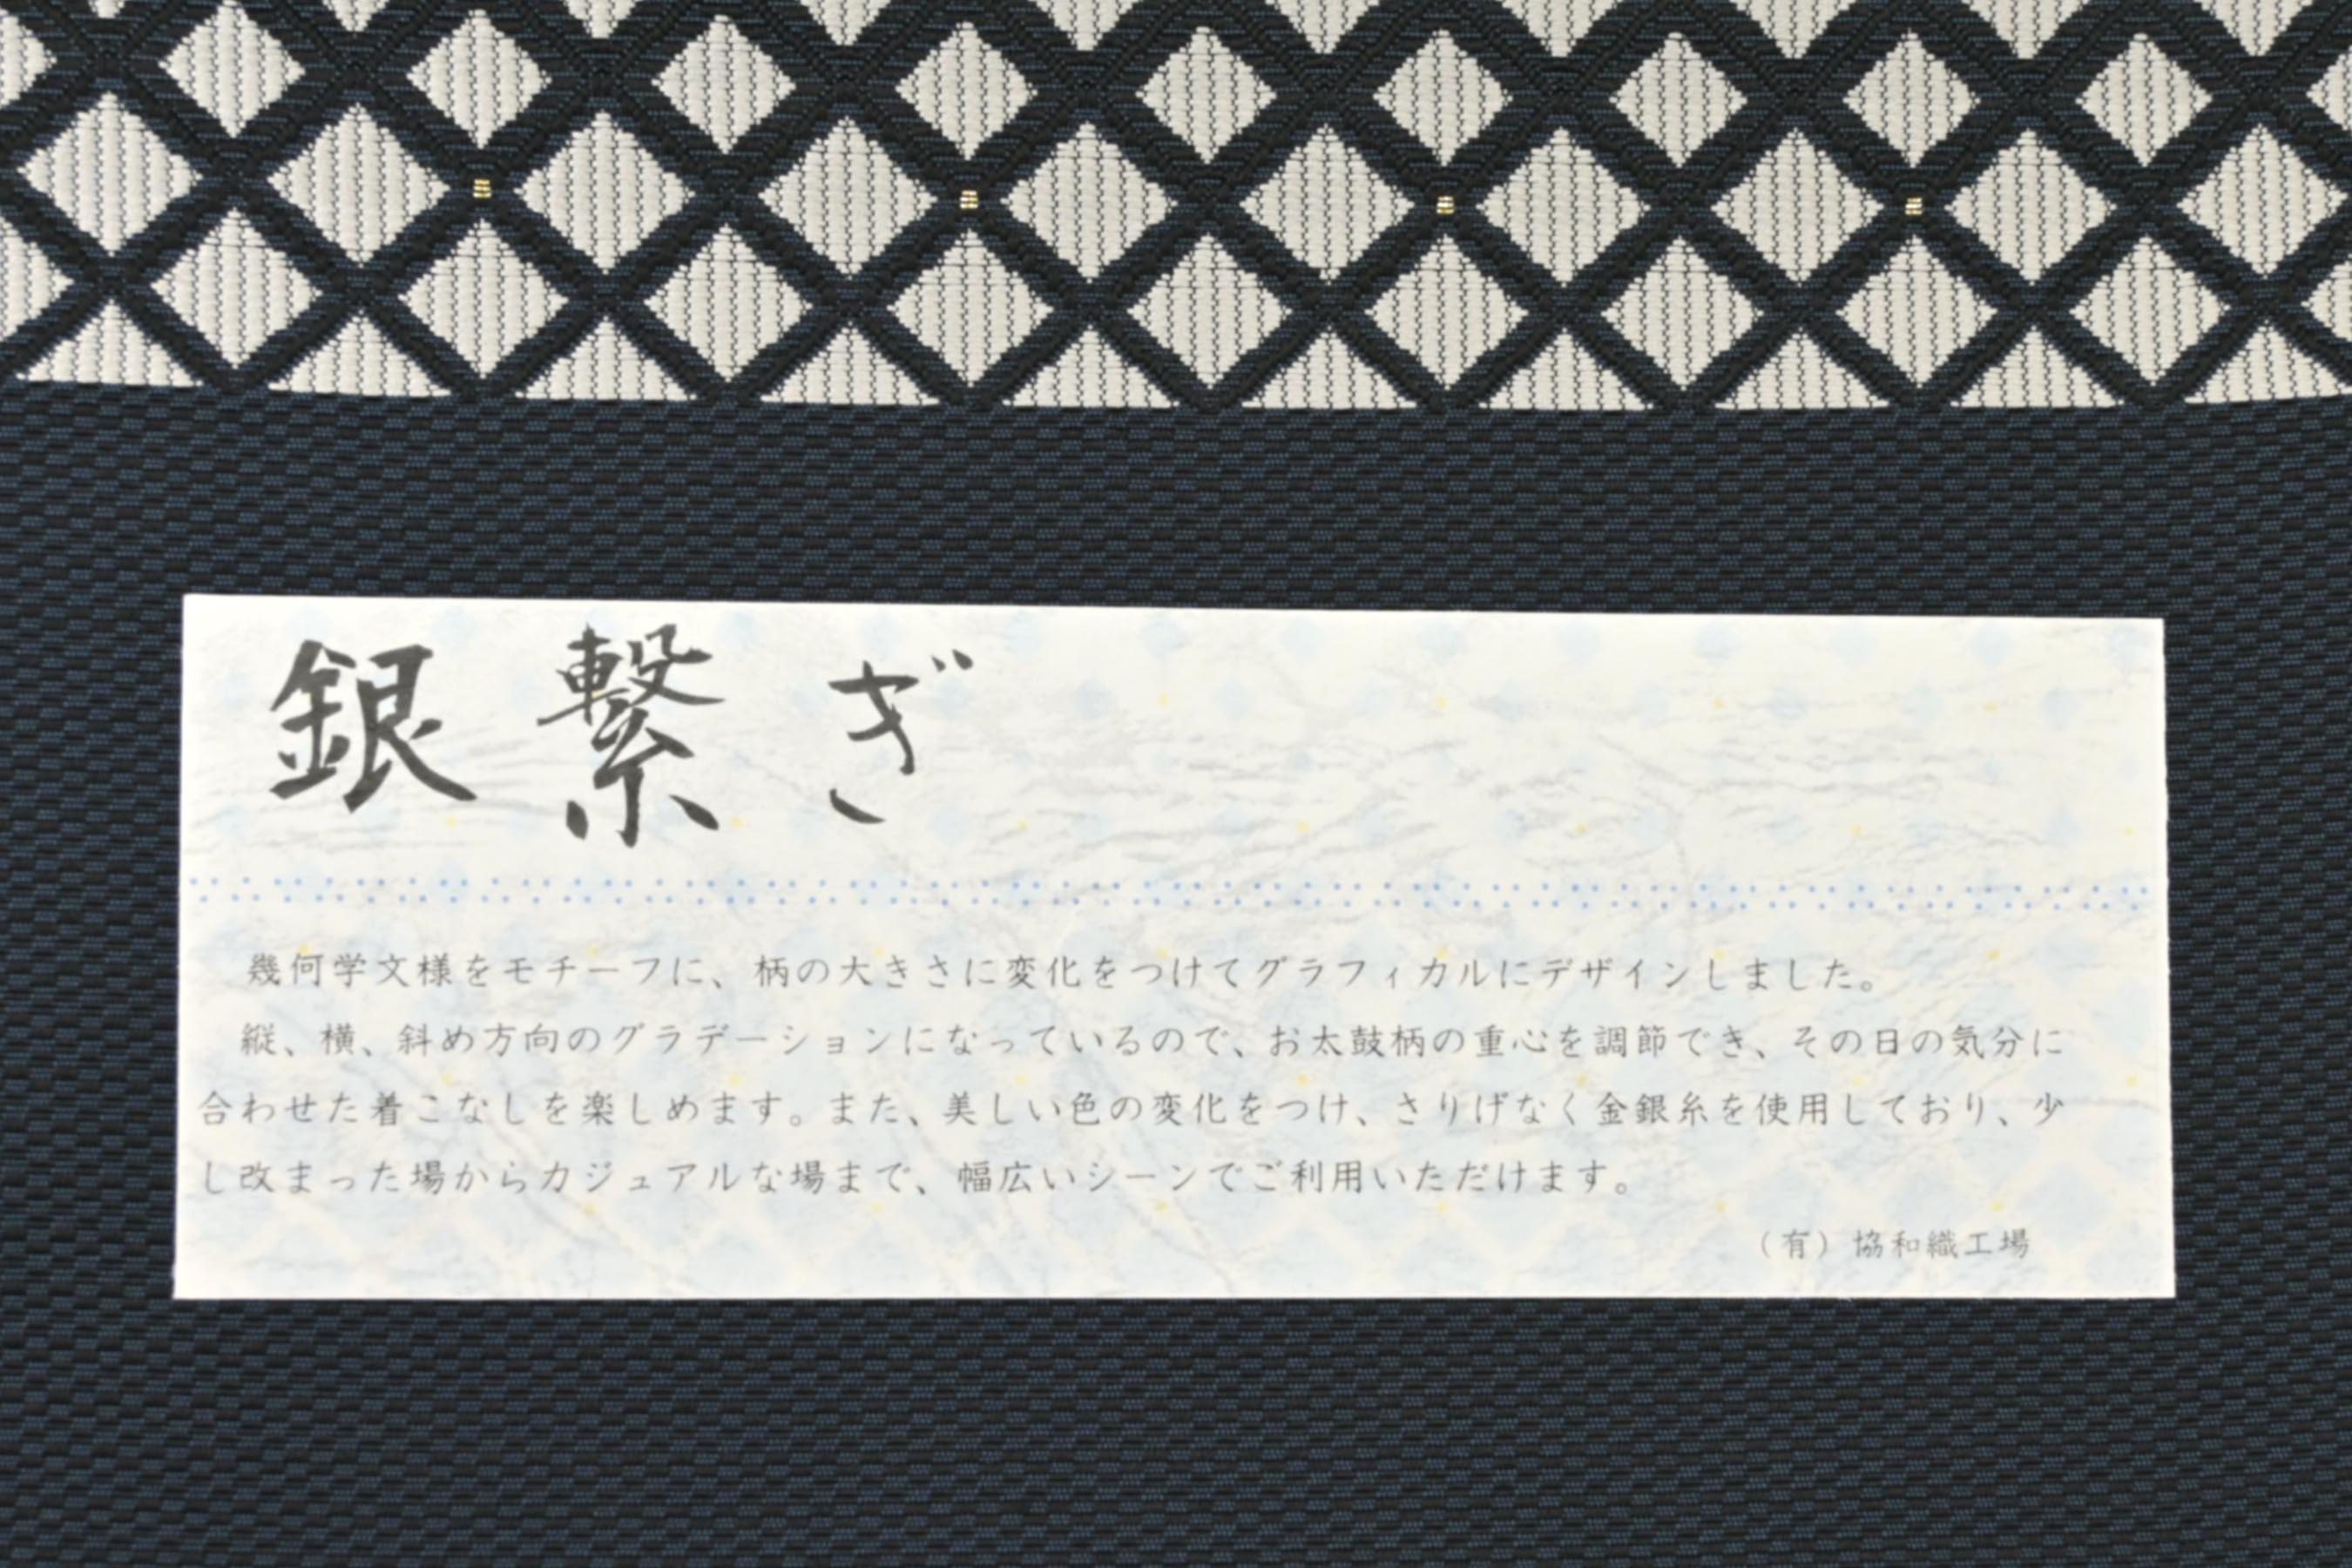 銀繋ぎ
幾何学文様をモチーフに、柄の大きさに変化をつけてグラフィカルにデザインしました。
縦、横、斜め方向のグラデーションになっているので、お太鼓柄の重心を調節でき、その日の気分に
合わせた着こなしを楽しめます。また、美しい色の変化をつけ、さりげなく金銀糸を使用しており、少
し改まった場からカジュアルな場まで、幅広いシーンでご利用いただけます。
（有）協和織工場